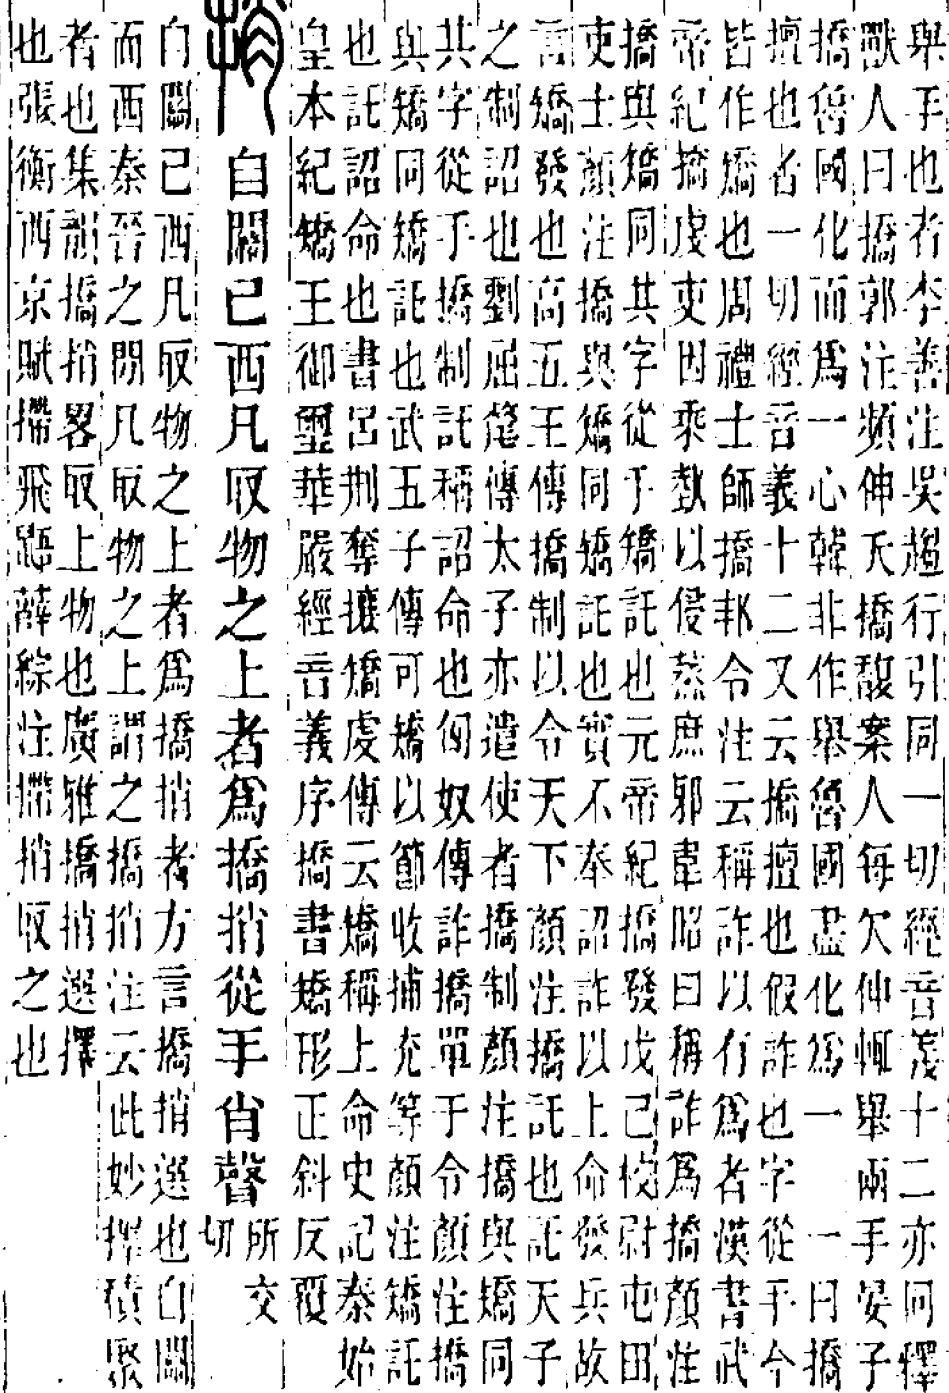 與手也者李善注吳趨行引同一切經音義十二亦同釋
獸人曰撟郭注頻伸夭撟馥案人每欠伸輒舉兩手晏子
撟魯國化而爲一心韓非作舉魯國盡化爲一 一曰撟
擅也者一切經音義十二又云撟擅也假詐也字從手今
皆作矯也周禮士師撟邦令注云稱詐以有爲者漢書武
帝紀撟虔吏因乘埶以侵蒸庶郭韋昭曰稱詐爲撟顏注
撟與矯同其字從手矯託也元帝紀撟發戊己校尉屯田
吏士顏注撟與矯同矯託也實不奉詔詐以上命發兵故
言矯發也高五王傳撟制以令天下顏注撟託也託天子
之制詔也劉屈氂傳太子亦遣使者撟制顏注撟與矯同
其字從手撟制託稱詔命也匈奴傳詐撟單于令顏注撟
與矯同矯託也武五子傳可矯以節收捕充等顏注矯託
也託詔命也書呂刑奪攘矯虔傳云矯稱上命史記秦始
皇本紀矯王御璽華嚴經音義序撟書矯形正斜反覆
捎 自關已西凡取物之上者爲撟捎從手肖聲 所交切
自關已西凡取物之上者爲撟捎者方言撟捎選也自關
而西秦晉之閒凡取物之上謂之撟捎注云此妙擇積聚
者也集韻撟捎畧取上物也廣雅撟捎選擇
也張衡西京賦摕飛鼯薛綜注摕捎取之也